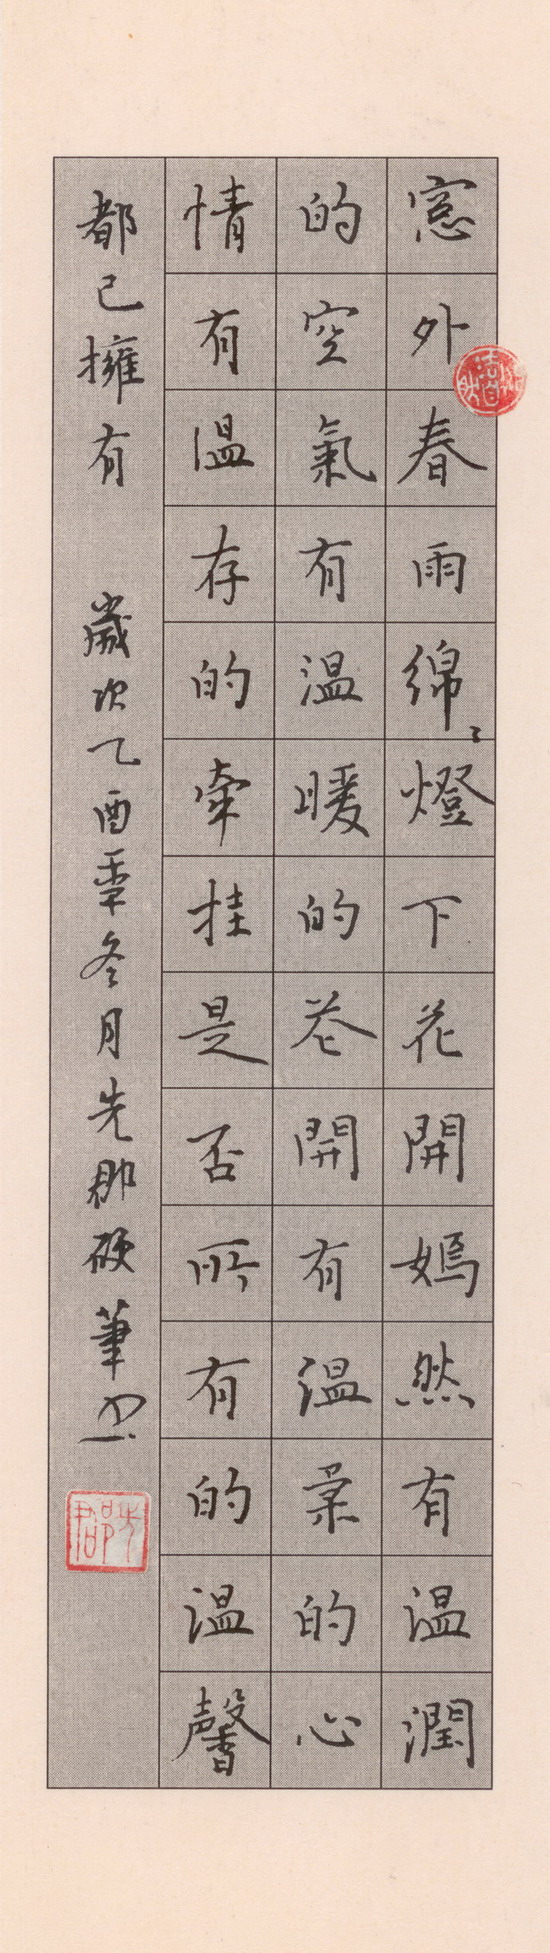 窓外春雨綿〻燈下花開嫣然有温潤
的空氣有温暖的花開有温柔的心
情有温存的牽挂是否所有的温馨
都已擁有 歲次乙酉冬月先郡硬筆書
先郡